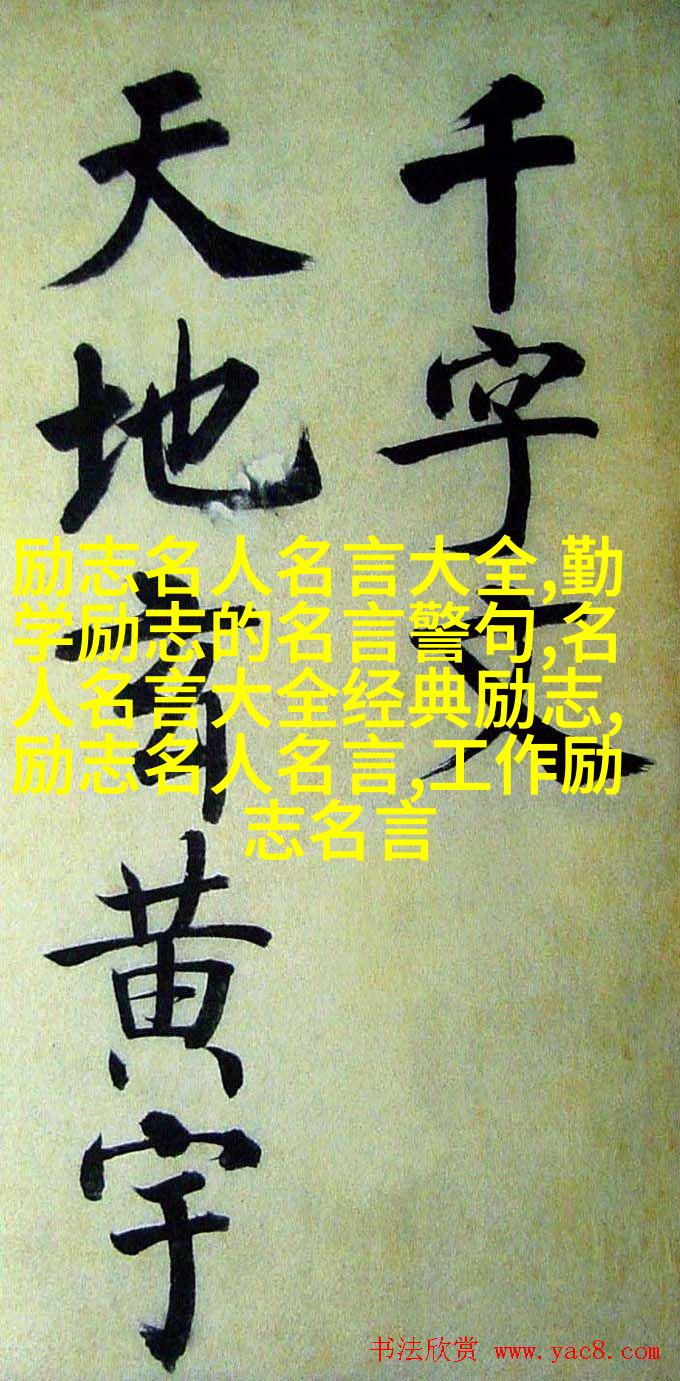 千字文
天地黄宇
励志名人名言大全,勤
学励志的名言警句,名
人名言大全经典励志,
励志名人名言,工作励
志名言
书法欣赏 www.yac8.com